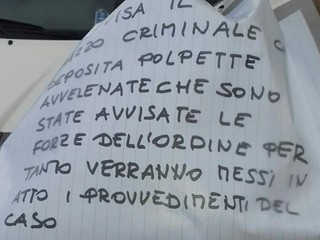 VISA IL
PAZZO CRIMINALE C
DEPOSITA POLPETTE
AVVELENATE CHE SONO
STATE AVVISATE LE
FORZE DELL'ORDINE PER
TANTO VERRANNO MESSI IN
ATTO I PROVVEDIMENTI DEL
CASO